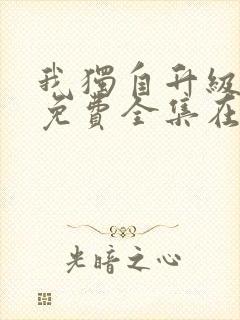 我獨自升級
免費全集在
光暗之心